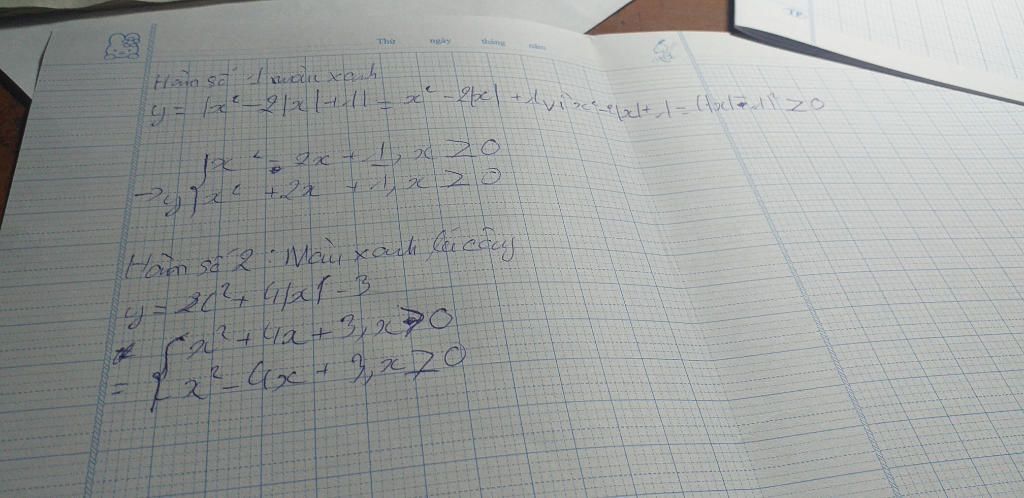 Thứ ngày tháng năm
TP
Hàm số 1 màu xanh
y = |x² - 2|x| + 1| = x² - 2|x| + 1 vì x² - 2|x| + 1 = (|x| - 1)² ≥ 0
→ y { x² - 2x + 1, x ≥ 0
x² + 2x + 1, x ≥ 0
Hàm số 2 : Màu xanh lá cây
y = x² + 4|x| - 3
= { x² + 4x + 3, x ≥ 0
x² - 4x + 3, x ≥ 0